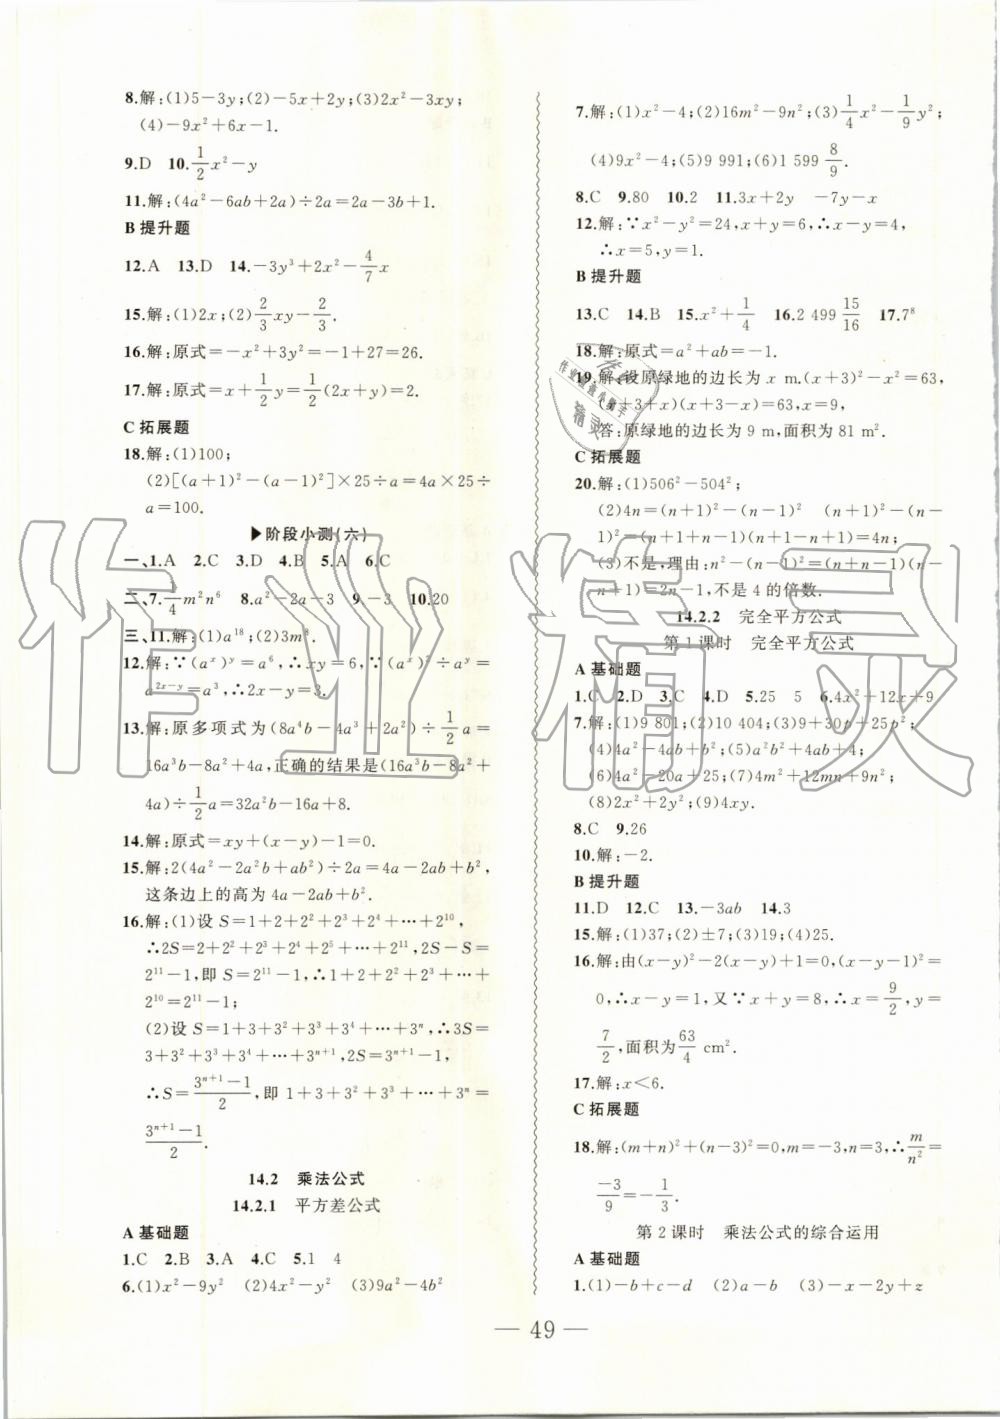 8.解:(1)5-3y;(2)-5x+2y;(3)2x²-3xy;
(4)-9x²+6x-1.
9.D 10.1/2x²-y
11.解:(4a²-6ab+2a)÷2a=2a-3b+1.
B提升题
12.A 13.D 14.-3y³+2x²-4/7x
15.解:(1)2x;(2)2/3xy-2/3.
16.解:原式=-x²+3y²=-1+27=26.
17.解:原式=x+1/2y=1/2(2x+y)=2.
C拓展题
18.解:(1)100;
(2)[(a+1)²-(a-1)²]×25÷a=4a×25÷
a=100.
▶阶段小测(六)
一、1.A 2.C 3.D 4.B 5.A 6.C
二、7.-1/4m²n⁶ 8.a²-2a-3 9.-3 10.20
三、11.解:(1)a¹⁸;(2)3m⁸.
12.解:∵(aˣ)ʸ=a⁶,∴xy=6,∵(aˣ)²÷aʸ=
a²ˣ⁻ʸ=a³,∴2x-y=3.
13.解:原多项式为(8a⁴b-4a³+2a²)÷1/2a=
16a³b-8a²+4a,正确的结果是(16a³b-8a²+
4a)÷1/2a=32a²b-16a+8.
14.解:原式=xy+(x-y)-1=0.
15.解:2(4a²-2a²b+ab²)÷2a=4a-2ab+b²,
这条边上的高为4a-2ab+b².
16.解:(1)设S=1+2+2²+2³+2⁴+…+2¹⁰,
∴2S=2+2²+2³+2⁴+2⁵+…+2¹¹,2S-S=
2¹¹-1,即S=2¹¹-1,∴1+2+2²+2³+…+
2¹⁰=2¹¹-1;
(2)设S=1+3+3²+3³+3⁴+…+3ⁿ,∴3S=
3+3²+3³+3⁴+…+3ⁿ⁺¹,2S=3ⁿ⁺¹-1,
∴S=(3ⁿ⁺¹-1)/2,即1+3+3²+3³+…+3ⁿ=
(3ⁿ⁺¹-1)/2.
14.2 乘法公式
14.2.1 平方差公式
A基础题
1.C 2.B 3.A 4.C 5.1 4
6.(1)x²-9y² (2)4x²-y² (3)9a²-4b²
7.解:(1)x²-4;(2)16m²-9n²;(3)1/4x²-1/9y²;
(4)9x²-4;(5)9 991;(6)1 599 8/9.
8.C 9.80 10.2 11.3x+2y -7y-x
12.解:∵x²-y²=24,x+y=6,∴x-y=4,
∴x=5,y=1.
B提升题
13.C 14.B 15.x²+1/4 16.2 499 15/16 17.7⁸
18.解:原式=a²+ab=-1.
19.解:设原绿地的边长为x m.(x+3)²-x²=63,
(x+3+x)(x+3-x)=63,x=9,
答:原绿地的边长为9 m,面积为81 m².
C拓展题
20.解:(1)506²-504²;
(2)4n=(n+1)²-(n-1)² (n+1)²-(n-
1)²=(n+1+n-1)(n+1-n+1)=4n;
(3)不是,理由:n²-(n-1)²=(n+n-1)(n-
n+1)=2n-1,不是4的倍数.
14.2.2 完全平方公式
第1课时 完全平方公式
A基础题
1.C 2.D 3.C 4.D 5.25 5 6.4x²+12x+9
7.解:(1)9 801;(2)10 404;(3)9+30p+25p²;
(4)4a²-4ab+b²;(5)a²b²+4ab+4;
(6)4a²-20a+25;(7)4m²+12mn+9n²;
(8)2x²+2y²;(9)4xy.
8.C 9.26
10.解:-2.
B提升题
11.D 12.C 13.-3ab 14.3
15.解:(1)37;(2)±7;(3)19;(4)25.
16.解:由(x-y)²-2(x-y)+1=0,(x-y-1)²=
0,∴x-y=1,又∵x+y=8,∴x=9/2,y=
7/2,面积为63/4 cm².
17.解:x<6.
C拓展题
18.解:(m+n)²+(n-3)²=0,m=-3,n=3,∴m/n²=
-3/9=-1/3.
第2课时 乘法公式的综合运用
A基础题
1.(1)-b+c-d (2)a-b (3)-x-2y+z
— 49 —
作业精灵